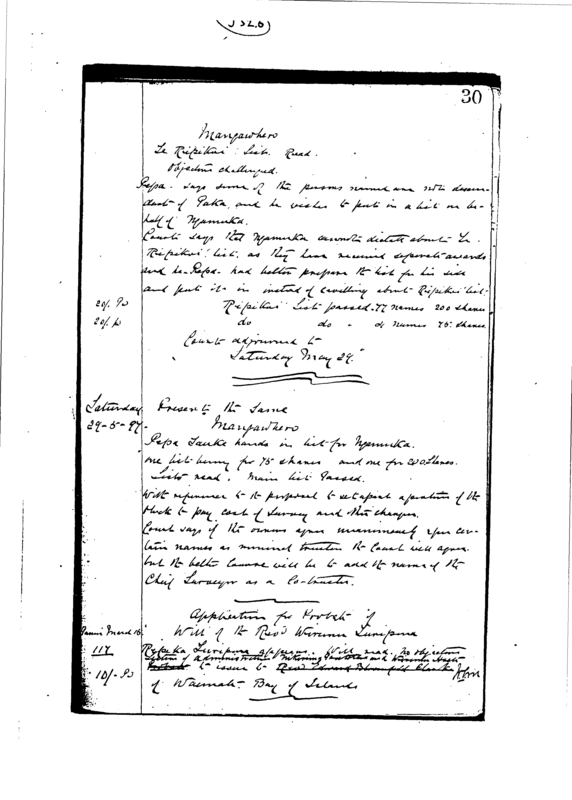 (J 52.0)
30
Mangawhero
Te Ripikoi List. Read.
Objections challenged.
Pepa. says some of the persons named are not descen-
dants of Paka, and he wishes to put in a list on be-
half of Ngamuka.
Court says that Ngamuka cannot dictate about Te
Ripikoi list. as they have received separate awards
and he. Pepa. had better prepare the list for his side
and put it in instead of cavilling about Ripikoi list.
20/. Pd Ripikoi List passed. 77 names 200 shares
20/. do do - names 75 shares
Court adjourned to
Saturday May 29.
Saturday Present the Same
29-5-97. Mangawhero
Pepa Tauke hands in list for Ngamuka.
one list being for 75 shares and one for 200 shares.
Lists read. Main list Passed.
With reference to the proposal to set apart a portion of the
block to pay cost of survey and other charges.
Court says if the owners agree unanimously upon cer-
tain names as nominal trustees the Court will agree.
but the better course will be to add the name of the
Chief Surveyor as a Co-trustee.
Application for Probate of
Will of the Revd Wiremu
117 appears. Will read. No objections
Letters of administration
to issue to Revd Edward Blomfield Clarke
10/- Pd of Waimate Bay of Islands